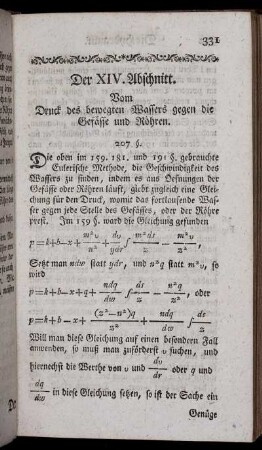 331
Der XIV. Abschnitt.
Vom
Druck des bewegten Wassers gegen die
Gefässe und Röhren.
207 §.
Die oben im 159. 181. und 191 §. gebrauchte
Eulerische Methode, die Geschwindigkeit des
Wassers zu finden, indem es aus Oefnungen der
Gefässe oder Röhren läuft, giebt zugleich eine Glei-
chung für den Druck, womit das fortlaufende Was-
ser gegen jede Stelle des Gefässes, oder der Röhre
prest. Im 159 §. ward die Gleichung gefunden
p=k+b-x+m²υ/n²+dυ/ydr∫m²ds/z-m²υ/z²,
Setzt man ndw statt ydr, und n²q statt m²υ, so
wird
p=k+b-x+q+ndq/dw∫ds/z-n²q/z², oder
p=k+b-x+(z²-n²)q/z²+ndq/dw∫ds/z
Will man diese Gleichung auf einen besondern Fall
anwenden, so muß man zuförderst υ suchen, und
hiernechst die Werthe von υ und dυ/dr oder q und
dq/dw in diese Gleichung setzen, so ist der Sache ein
Genüge